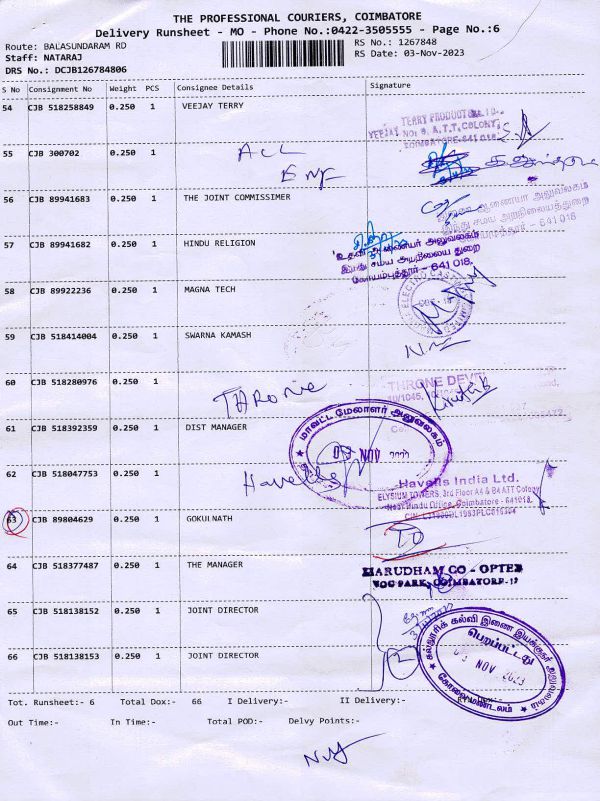 THE PROFESSIONAL COURIERS, COIMBATORE
Delivery Runsheet - MO - Phone No.:0422-3505555 - Page No.:6
Route: BALASUNDARAM RD
RS No.: 1267848
Staff: NATARAJ
RS Date: 03-Nov-2023
DRS No.: DCJB126784806
S No Consignment No Weight PCS Consignee Details Signature
54 CJB 518258849 0.250 1 VEEJAY TERRY
TERRY PRODUCTS LTD.
VEEJAY NO: 9, A.T.T. COLONY,
COIMBATORE-641 018.
55 CJB 300702 0.250 1 ACL
56 CJB 89941683 0.250 1 THE JOINT COMMISSIMER
இந்து சமய அறநிலையத்துறை
57 CJB 89941682 0.250 1 HINDU RELIGION
உதவி ஆணையர் அலுவலகம்
இந்து சமய அறநிலைய துறை
கோயம்புத்தூர் - 641 018.
58 CJB 89922236 0.250 1 MAGNA TECH
59 CJB 518414004 0.250 1 SWARNA KAMASH
60 CJB 518280976 0.250 1 THRONE
THRONE DEVT
61 CJB 518392359 0.250 1 DIST MANAGER
மாவட்ட மேலாளர் அலுவலகம்
03 NOV
62 CJB 518047753 0.250 1 Havells
Havells India Ltd.
ELYSIUM TOWERS, 3rd Floor A4 & B4 ATT Colony
Near Hindu Office, Coimbatore - 641018.
63 CJB 89804629 0.250 1 GOKULNATH
64 CJB 518377487 0.250 1 THE MANAGER
MARUDHAM CO - OPTEX
VOC PARK, COIMBATORE-18
65 CJB 518138152 0.250 1 JOINT DIRECTOR
66 CJB 518138153 0.250 1 JOINT DIRECTOR
கல்லூரிக் கல்வி இணை இயக்குநர் அலுவலகம்
பெறப்பட்டது
03 NOV 2023
கோவை மண்டலம்
Tot. Runsheet:- 6 Total Dox:- 66 I Delivery:- II Delivery:-
Out Time:- In Time:- Total POD:- Delvy Points:-